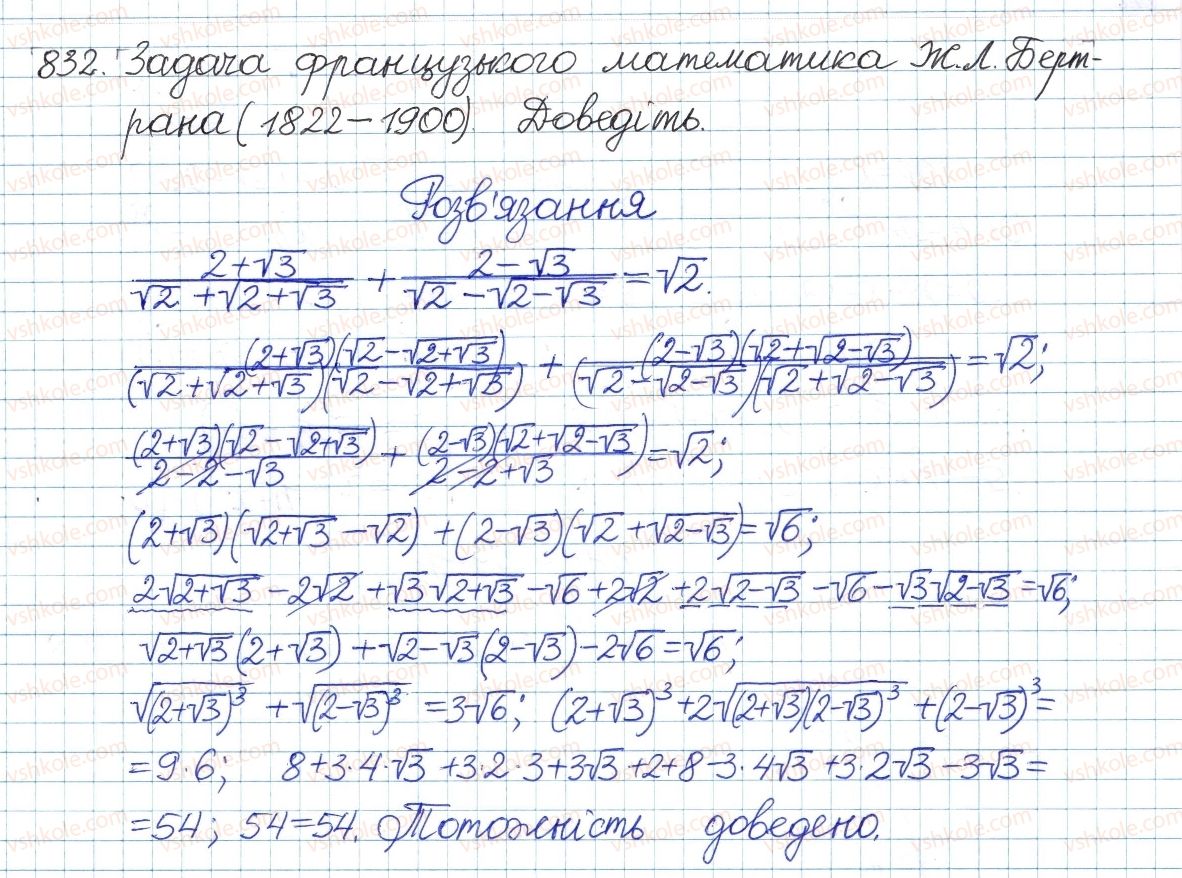 832. Задача французького математика Ж.Л. Берт-
рана (1822–1900). Доведіть.
Розв'язання
(2+√3)/(√2+√(2+√3)) + (2-√3)/(√2-√(2-√3)) = √2.
((2+√3)(√2-√(2+√3)))/((√2+√(2+√3))(√2-√(2+√3))) + ((2-√3)(√2+√(2-√3)))/((√2-√(2-√3))(√2+√(2-√3))) = √2;
((2+√3)(√2-√(2+√3)))/(2-2-√3) + ((2-√3)(√2+√(2-√3)))/(2-2+√3) = √2;
(2+√3)(√(2+√3)-√2) + (2-√3)(√2+√(2-√3)) = √6;
2√(2+√3) - 2√2 + √3√(2+√3) - √6 + 2√2 + 2√(2-√3) - √6 - √3√(2-√3) = √6;
√(2+√3)(2+√3) + √(2-√3)(2-√3) - 2√6 = √6;
√((2+√3)³) + √((2-√3)³) = 3√6; (2+√3)³ + 2√((2+√3)(2-√3)³) + (2-√3)³ =
= 9·6; 8+3·4·√3 +3·2·3+3√3+2+8-3·4√3 +3·2√3 -3√3 =
= 54; 54=54. Тотожність доведено.